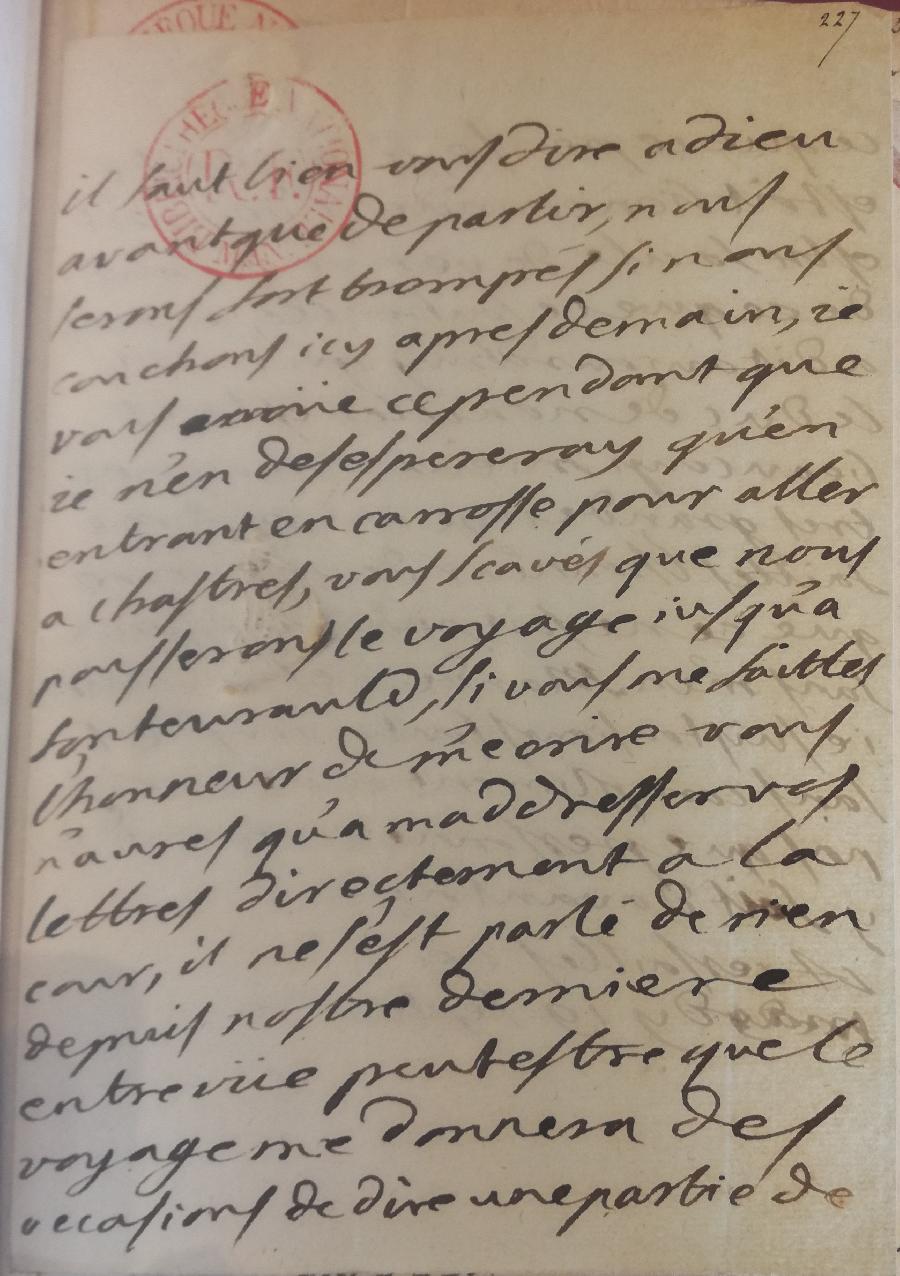 227
il faut bien vous dire adieu
avant que de partir, nous
serons fort trompés si nous
couchons icy apres demain, ie
vous avoüe cependant que
ie n'en desespereray qu'en
entrant en carrosse pour aller
a chastres, vous scavés que nous
pousserons le voyage iusqu'a
fonteurauld, si vous me faittes
l'honneur de m'ecrire vous
n'aures qu'a maddresser vos
lettres directement a la
cour, il ne s'est parlé de rien
depuis nostre derniere
entreviüe peutestre que le
voyage me donnera des
occasions de dire une partie de